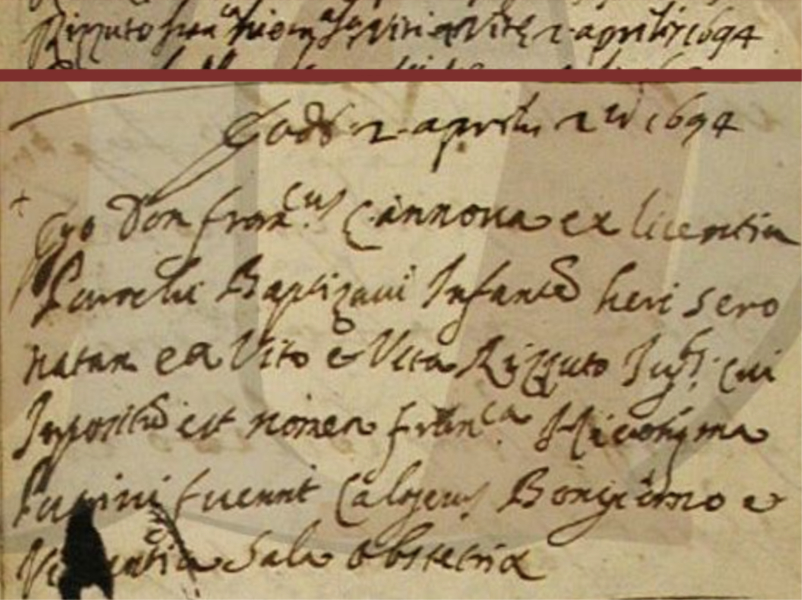 Rizzuto Fran.ca Hieron.a Viti e Vite 2 aprilis 1694
2 aprilis 2 Ind 1694
Ego Don Fran.cus Cannova ex licentia
Parochi Baptizavi Infante heri sero
natam ex Vito e Vita Rizzuto Jug. cui
Impositu est nomen Fran.ca Hieronyma
Patrini fuerunt Calogerus Bongiorno e
Sala obstetrix